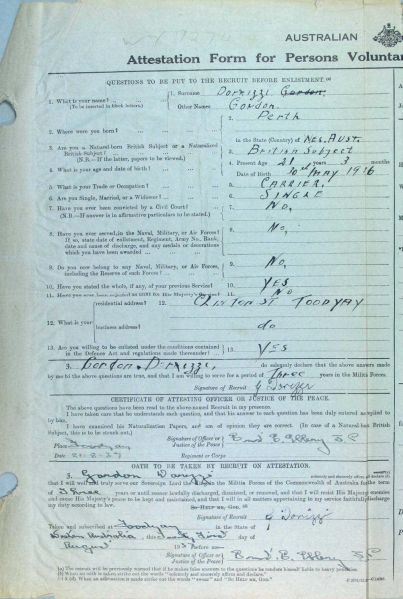 AUSTRALIAN
Attestation Form for Persons Voluntar
QUESTIONS TO BE PUT TO THE RECRUIT BEFORE ENLISTMENT.
1. What is your name? ... 1. Surname Dorizzi Gordon
(To be inserted in block letters.) Other Names Gordon.
2. Where were you born? ... 2. Perth
in the State (Country) of Wes. Aust.
3. Are you a Natural-born British Subject or a Naturalized British Subject? 3. British Subject
(N.B.—If the latter, papers to be viewed.)
4. What is your age and date of birth? 4. Present Age 21 years 3 months
Date of Birth MAY 1916
5. What is your Trade or Occupation? 5. CARRIER.
6. Are you Single, Married, or a Widower? 6. SINGLE
7. Have you ever been convicted by a Civil Court? 7. NO.
(N.B.—If answer is in affirmative particulars to be stated.)
8. Have you ever served in the Navy, Military, or Air Forces? 8. NO.
If so, state date of enlistment, Regiment, Army No., Rank,
date and cause of discharge, and any medals or decorations
which you have been awarded
9. Do you now belong to any Naval, Military, or Air Forces, 9. NO.
including the Reserve of such Forces?
10. Have you stated the whole, if any, of your previous Service? 10. YES
11. Have you ever been rejected 11. NO
12. What is your residential address? 12. CLINTON ST TOODYAY
business address? do
13. Are you willing to be enlisted under the conditions contained 13. YES
in the Defence Act and regulations made thereunder?
I, Gordon Dorizzi, do solemnly declare that the above answers made
by me to the above questions are true, and that I am willing to serve for a period of Three years in the Militia Forces.
Signature of Recruit G Dorizzi
CERTIFICATE OF ATTESTING OFFICER OR JUSTICE OF THE PEACE.
The above questions have been read to the above-named Recruit in my presence.
I have taken care that he understands each question, and that his answer to each question has been duly entered as replied to
by him.
I have examined his Naturalization Papers, and am of opinion they are correct. (In case of a Natural-born British
Subject, this is to be struck out.)
Place Toodyay Signature of Officer or Justice of the Peace J.P.
Date 21-8-37 Regiment or Corps
OATH TO BE TAKEN BY RECRUIT ON ATTESTATION.
I, Gordon Dorizzi
that I will well and truly serve our Sovereign Lord the King in the Militia Forces of the Commonwealth of Australia for the term
of Three years or until sooner lawfully discharged, dismissed, or removed, and that I will resist His Majesty's enemies
and cause His Majesty's peace to be kept and maintained, and that I will in all matters appertaining to my service faithfully discharge
my duty according to law.
SO HELP ME, GOD.
Signature of Recruit G Dorizzi
Taken and subscribed at Toodyay in the State of
Western Australia this first day of
August 193 before me—
Signature of Officer or Justice of the Peace J.P.
(a) The recruit will be previously warned that if he makes false answers to the questions he renders himself liable to heavy penalties.